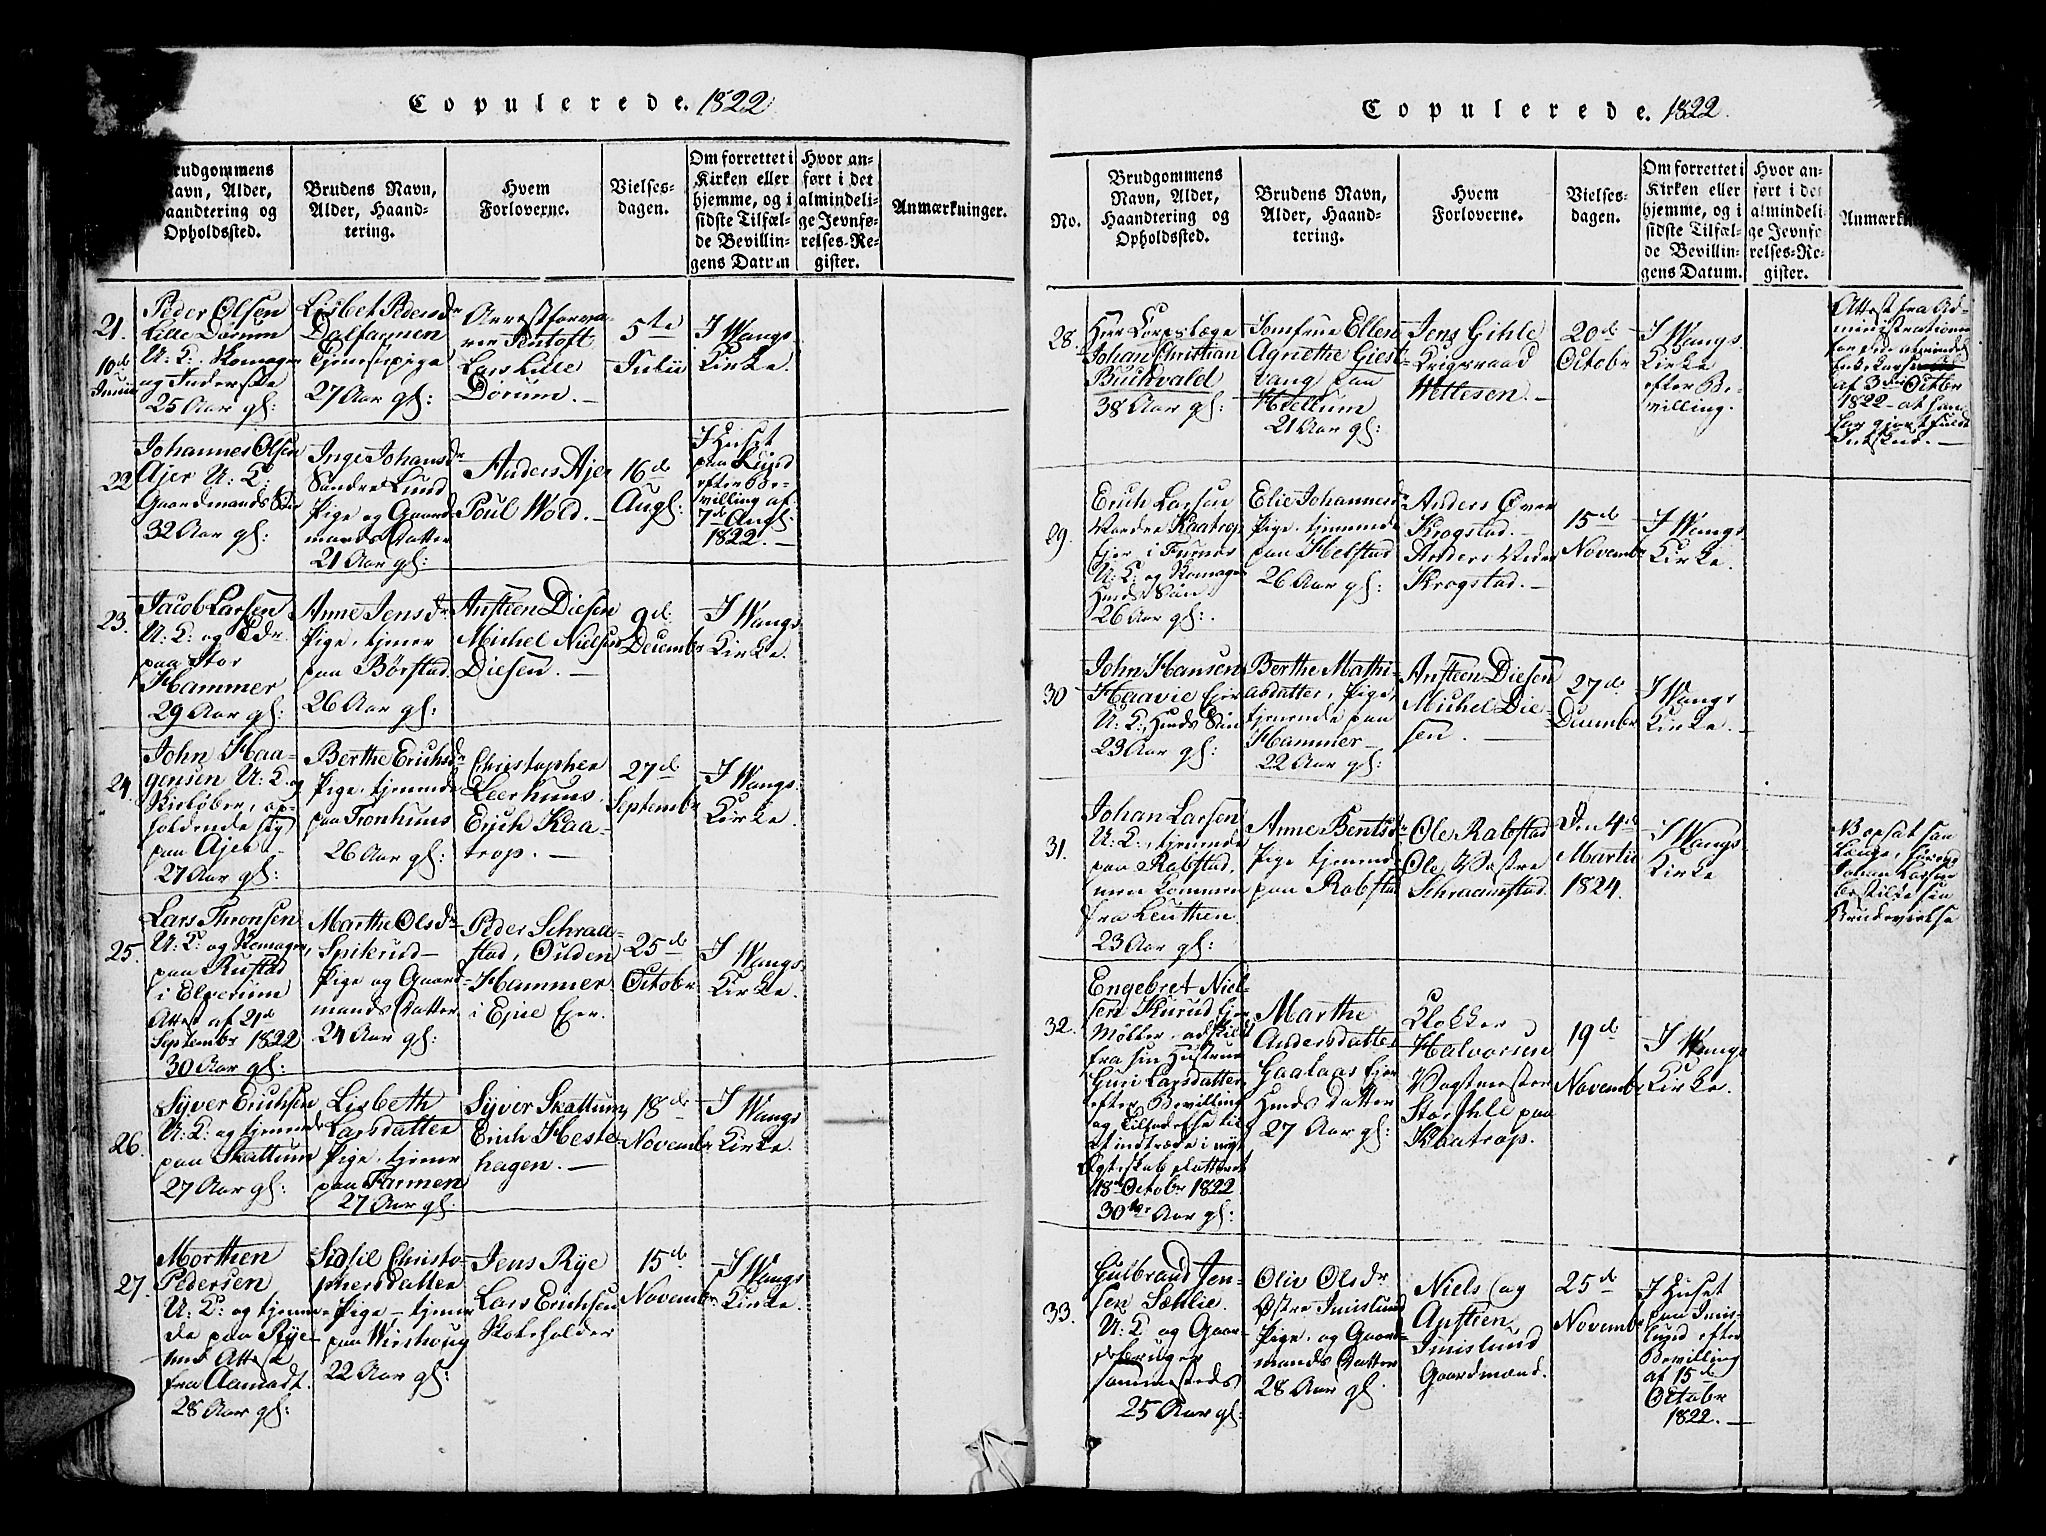 Copulerede. 1822
Brudgommens
Navn, Alder,
Haandtering og
Opholdssted.
Brudens Navn,
Alder, Haand-
tering.
Hvem
Forloverne.
Vielses-
dagen.
Om forrettet i
Kirken eller
hjemme, og i
sidste Tilfæl-
de Bevillin-
gens Datum
Hvor an-
ført i det
almindeli-
ge Jevnfø-
relses-Re-
gister.
Anmærkninger.
21.
10de
Junii
Peder Olsen
Lille Dørum
U: K: Skomager
og Inderste
25 Aar gl:
Lisbet Pedersdr
Dalfarmen
Tjenestepige
27 Aar gl:
Arrestforva-
rer Tentoft
Lars Lille
Dørum. –
5te
Julii
I Wangs
Kirke.
22
Johannes Olsen
Ajer U: K:
Gaardmands Søn
32 Aar gl:
Inge Johansdr
Søndre Lund
Pige og Gaard
mands Datter
21 Aar gl:
Anders Ajer
Poul Wold. –
16de
Augl:
I Huset
paa Lund
efter Be-
villing af
7de Augl:
1822. –
23.
Jacob Larsen
U: K: og
paa Stor
Hammer
29 Aar gl:
Anne Jensdr
Pige, tjener
paa Børstad
26 Aar gl:
Ansteen Diesen
Michel Nielsen
Diesen. –
9de
Decembr
I Wangs
Kirke.
24.
John Haa-
gensen U: K: og
Skieløber, op-
holdende sig
paa Ajer –
27 Aar gl:
Berthe Erichsdr
Pige, tjenende
paa Tronhuus
26 Aar gl:
Christopher
Leerhuus.
Erich Kaa-
trop. –
27de
Septembr
I Wangs
Kirke.
25.
Lars Thronsen
U: K: og Skomager,
paa Rustad
i Elverum
Attest af 21de
Septembr 1822
30 Aar gl:
Marthe Olsdr
Spikrud –
Pige og Gaard-
mands Datter
24 Aar gl:
Peder Schraa-
stad, Ouden
Hammer
i Ejne Ejer.
25de
Octobr
I Wangs
Kirke.
26.
Syver Erichsen
U: K: og tjenende
paa Skattum
27 Aar gl:
Lisbeth
Larsdatter
Pige, tjener
paa Farmen
27 Aar gl.
Syver Skattum,
Erich Heste-
hagen. –
18de
Novembr
I Wangs
Kirke.
27.
Morthen
Pedersen
U: K: og tjenen-
de paa Rye
med Attest
fra Aamodt.
28 Aar gl:
Sidsil Christo-
phersdatter
Pige, – tjener
paa Wirshoug
22 Aar gl:
Jens Rye
Lars Erichsen
Skoleholder
15de
Novembr
I Wangs
Kirke.
Copulerede. 1822.
No.
Brudgommens
Navn, Alder,
Haandtering og
Opholdssted.
Brudens Navn,
Alder, Haand-
tering.
Hvem
Forloverne.
Vielses-
dagen.
Om forrettet i
Kirken eller
hjemme, og i
sidste Tilfæl-
de Bevillin-
gens Datum.
Hvor an-
ført i det
almindeli-
ge Jevnfø-
relses-Re-
gister.
28.
Herr Corpslæge
Johan Christian
Buchwald
38 Aar gl:
Jomfrue Ellen
Agnethe Giest-
vang paa
Hiellum
21 Aar gl:
Jens Gihle
Krigsraad
Wellesen. –
20de
Octobr
I Wangs
Kirke
efter Be-
villing.
Attest fra Ad-
ministrationen
for
af 3die Octbr
1822 – at han
har gjort fuldt
Indskud. –
29.
Erich Larsen
Nordre Kaatrop
Ejer i Furnæs
U: K: og Skomager
Huusm: Søn
26 Aar gl:.
Elie Johannesdr
Pige, tjenende
paa Helstad
26 Aar gl:
Anders Øvre
Krogstad. –
Anders Nedre
Krogstad. –
15de
Novembr
I Wangs
Kirke.
30
John Hansen
Haavie Ejer
U: K: Huusm: Søn
23 Aar gl:
Berthe Mathi-
asdatter, Pige,
tjenende paa
Hammer –
22 Aar gl:
Ansteen Diesen
Michel Die-
sen. –
27de
Decembr
I Wangs
Kirke. –
31.
Johan Larsen
U: K:, tjenende
paa Rabstad,
men kommen
fra Leuthen
23 Aar gl:
Anne Bentsdr
Pige tjenende
paa Rabstad
Ole Rabstad
Ole Vestre
Schraamstad.
Den 4de
Martii
1824.
I Wangs
Kirke
Johan Larsen
bestilde sin
Brudevielse
32.
Engebret Niel-
sen Kurud Ejer
Møller, adskildt
fra sin Hustrue
Guri Larsdatter
efter Bevilling
og Tilladelse til
at indtræde i nyt
Ægteskab dateret
18de Octobr 1822
30ve Aar gl:
Marthe
Andersdatter
Gaalaas Ejer
Huusm: Datter
27 Aar gl:
Klokker
Halvorsen
Vagtmester
Storihle paa
Kaatrop.
19de
Novembr
I Wangs
Kirke.
33.
Gulbrand Jen-
sen Sæhlie.
U: K og Gaar-
debruger
sammesteds
25 Aar gl:
Oliv Olsdr
Østre Imislund
Pige og Gaard-
mands Datter
28 Aar gl.
Niels og
Ansteen
Imislund
Gaardmænd.
25de
Novembr
I Huset
paa Imis-
lund efter
Bevilling
af 15de
Octobr
1822. –